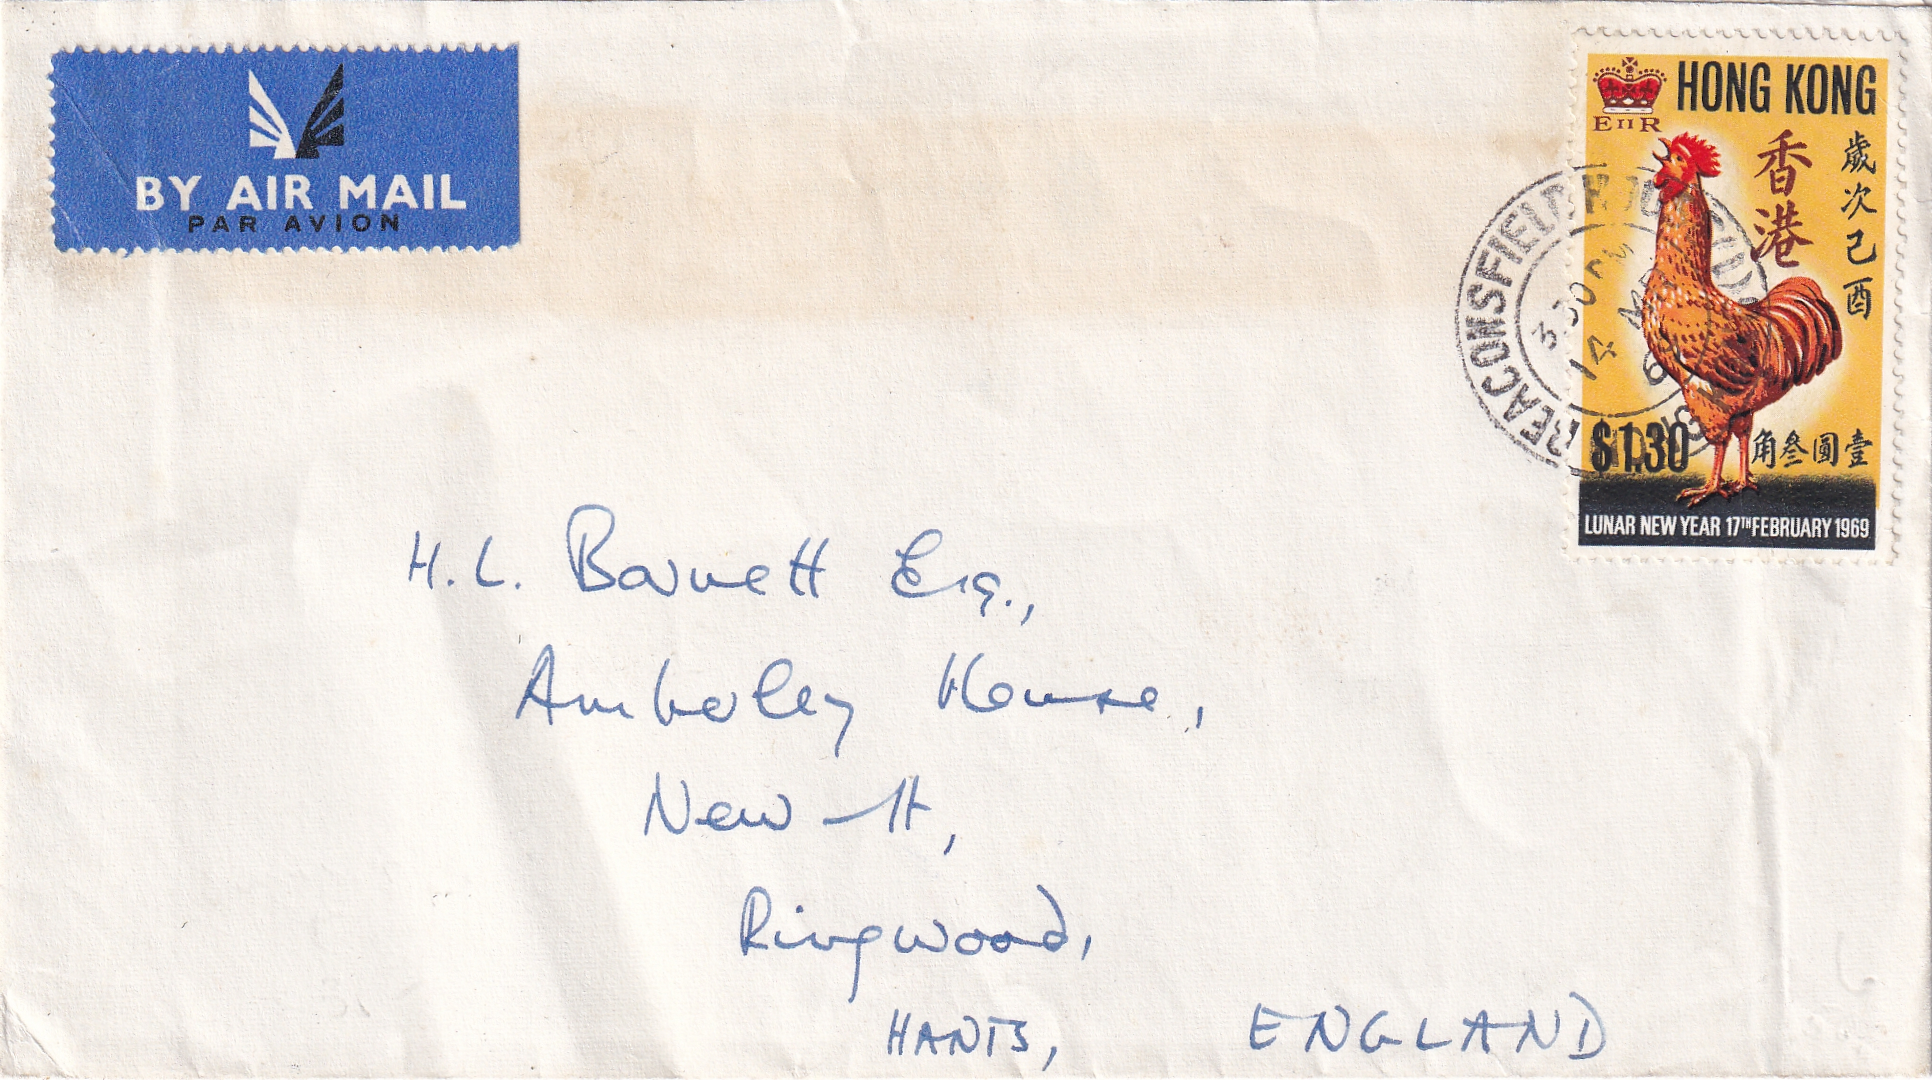 BY AIR MAIL
PAR AVION
HONG KONG
E II R
香港
歲次己酉
BEACONSFIELD
3.30 PM
14 APR
6
$1.30
角叁圓壹
LUNAR NEW YEAR 17TH FEBRUARY 1969
H. L. Barnett Esq.,
Amberley House,
New St,
Ringwood,
HANTS, ENGLAND